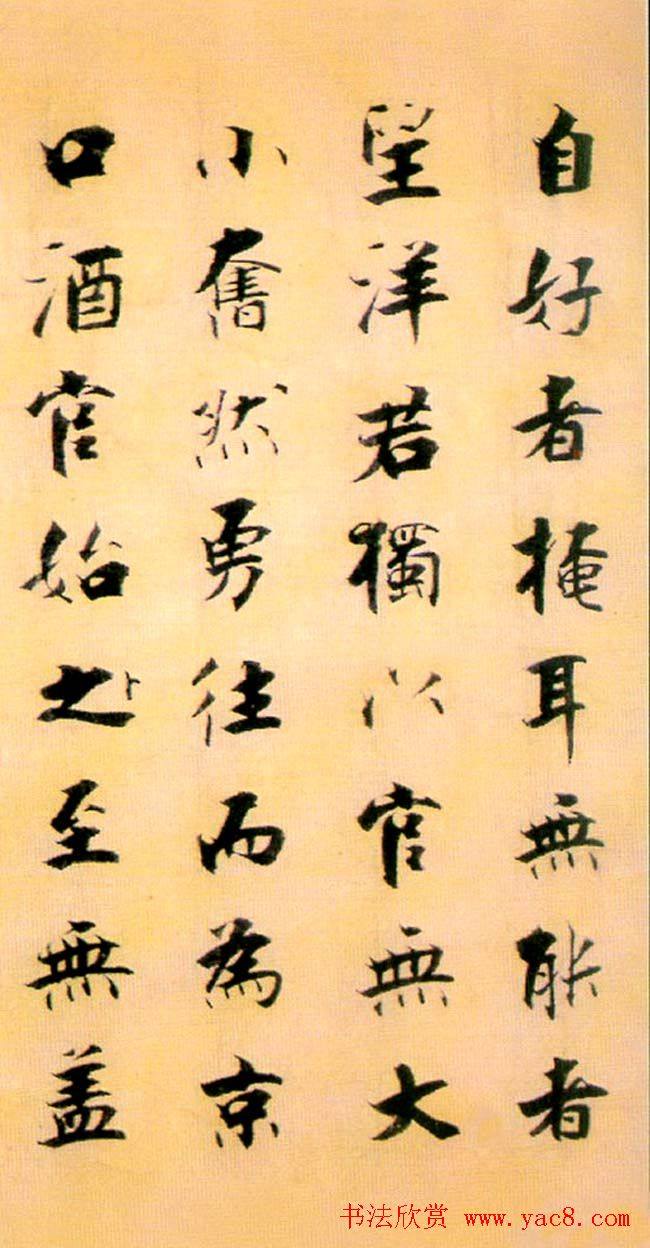 自好者掩耳無能者
望洋若獨以官無大
小奮然勇往而為京
口酒官始之至無盖
书法欣赏 www.yac8.com